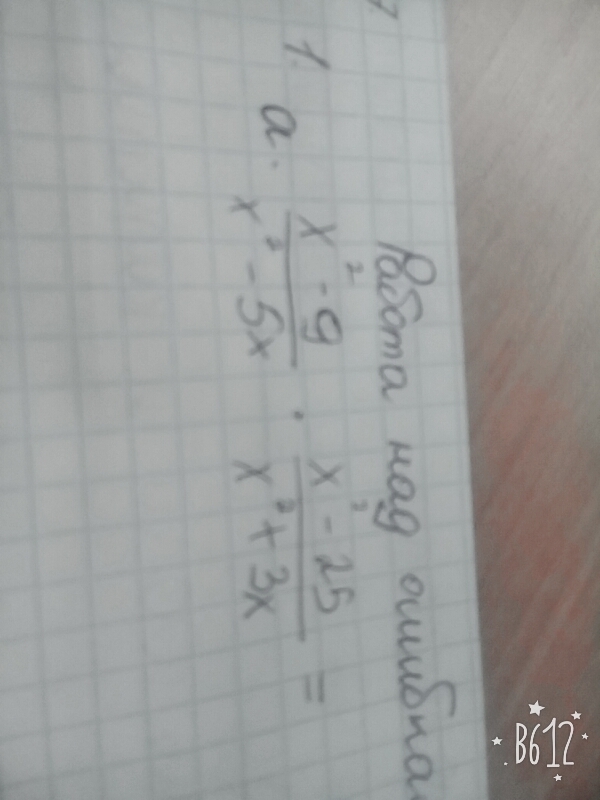 Работа над ошибкам
1.
а. (x² - 9)/(x² - 5x) · (x² - 25)/(x² + 3x) =
B612